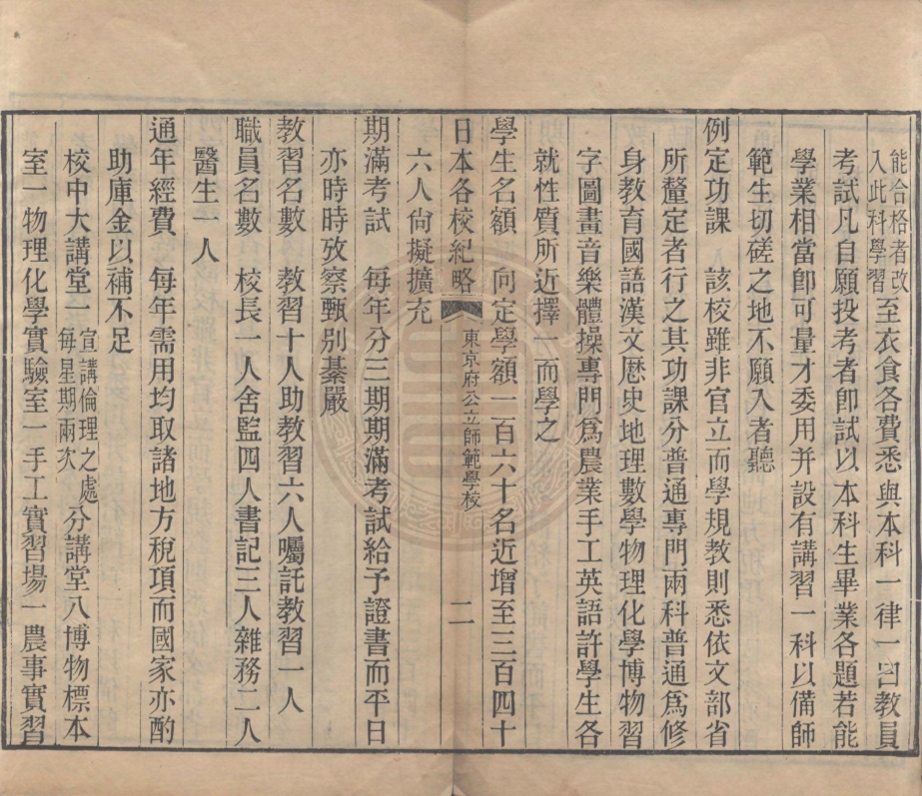 能合格者改入此科學習至衣食各費悉與本科一律一曰教員
考試凡自願投考者卽試以本科生畢業各題若能
學業相當卽可量才委用并設有講習一科以備師
範生切磋之地不願入者聽
例定功課　該校雖非官立而學規教則悉依文部省
所釐定者行之其功課分普通專門兩科普通爲修
身教育國語漢文歷史地理數學物理化學博物習
字圖畫音樂體操專門爲農業手工英語許學生各
就性質所近擇一而學之
學生名額　向定學額一百六十名近增至三百四十
日本各校紀略　東京府公立師範學校　二
六人尙擬擴充
期滿考試　每年分三期期滿考試給予證書而平日
亦時時攷察甄別綦嚴
教習名數　教習十人助教習六人囑託教習一人
職員名數　校長一人舍監四人書記三人雜務二人
醫生一人
通年經費　每年需用均取諸地方稅項而國家亦酌
助庫金以補不足
校中大講堂一宣講倫理之處每星期兩次分講堂八博物標本
室一物理化學實驗室一手工實習場一農事實習